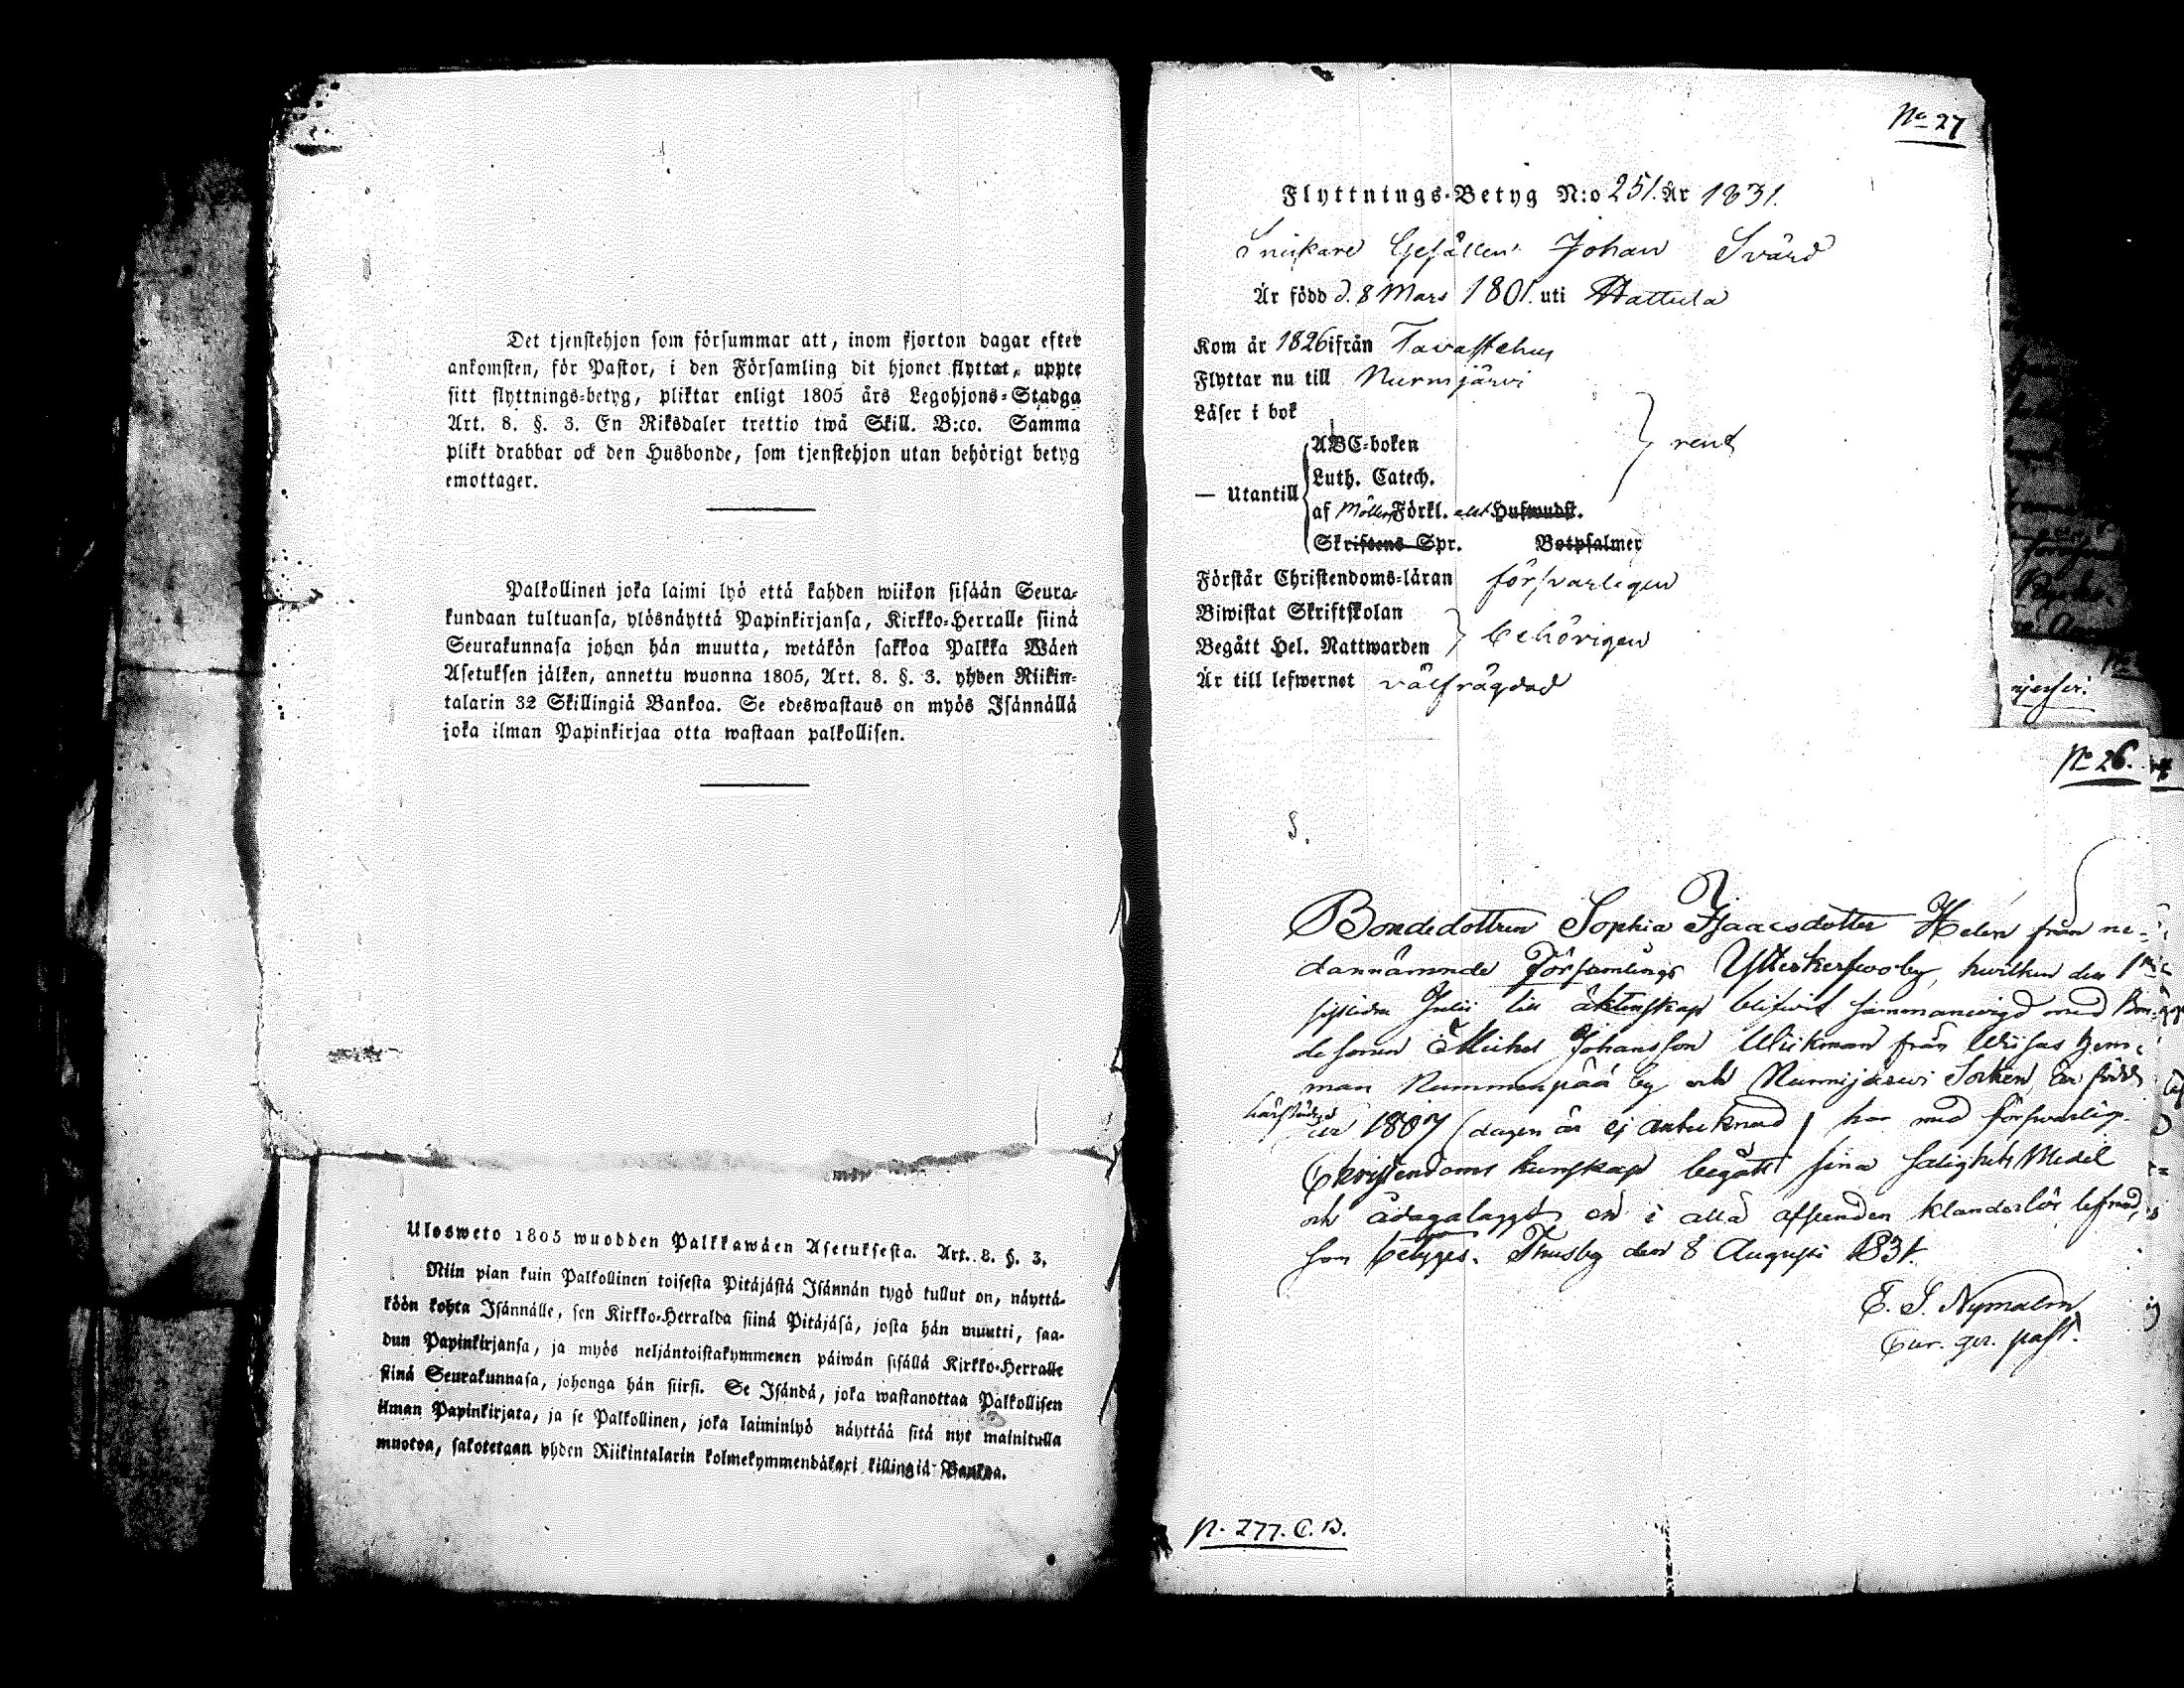 Det tjenstehjon som försummar att, inom fjorton dagar efter
ankomsten, för Pastor, i den Församling dit hjonet flyttat, uppte
sitt flyttnings-betyg, pliktar enligt 1805 års Legohjons-Stadga
Art. 8. §. 3. En Riksdaler trettio twå Skill. B:co. Samma
plikt drabbar ock den Husbonde, som tjenstehjon utan behörigt betyg
emottager.
Palkollinen joka laimi lyö että kahden wiikon sisään Seura-
kundaan tultuansa, ylösnäyttä Papinkirjansa, Kirkko-Herralle siinä
Seurakunnasa johon hän muutta, wetäkön sakkoa Palkka Wäen
Asetuksen jälken, annettu wuonna 1805, Art. 8. §. 3. yhden Riikin-
talarin 32 Skillingiä Bankoa. Se edeswastaus on myös Isännällä
joka ilman Papinkirjaa otta wastaan palkollisen.
Ulosweto 1805 wuodden Palkkawäen Asetuksesta. Art. 8. §. 3.
Niin pian kuin Palkollinen toisesta Pitäjästä Isännän tygö tullut on, näyttä-
köön kohta Isännälle, sen Kirkko-Herralda siinä Pitäjäsä, josta hän muutti, saa-
dun Papinkirjansa, ja myös neljäntoistakymmenen päiwän sisällä Kirkko-Herralle
siinä Seurakunnasa, johonga hän siirsi. Se Isändä, joka wastanottaa Palkollisen
ilman Papinkirjata, ja se Palkollinen, joka laiminlyö näyttää sitä nyt mainitulla
muotoa, sakotetaan yhden Riikintalarin kolmekymmendäkaxi killingiä Bankoa.
No 27
Flyttnings-Betyg N:o 251. År 1831.
Snickare Gesällen Johan Svärd
Är född d. 8 Mars 1801. uti Hattula
Kom år 1826 ifrån Tavastehus
Flyttar nu till Nurmjärvi
Läser i bok
ABC-boken
rent
Luth. Catech.
— Utantill
af Möllers Förkl. Huswudst.
Skriftens Spr. Botpsalmer
Förstår Christendoms-läran försvarligen
Biwistat Skriftskolan
Begått Hel. Nattwarden behörigen
Är till lefwernet välfrägdad
No 26.
Bondedottren Sophia Isaacsdotter Helen från ne-
dannämnde Församlings by, hwilken den 1
sistledne Julii till äktenskap blifwit sammanwigd med Bon-
desonen Michel Johansson Wikman från hem-
man Nummenpää by och Nurmijärwi Socken, är född
härstädes
år 1807 (dagen är ej antecknad) har med förswarlig
Christendoms kunskap begått sina salighets Medel
och ådagalaggt en i alla afseenden klanderlös lefnad,
som betyges. Thusby den 8 Augusti 1831.
E. J. Nymalm
Cur. ger. past.
p. 277. C. B.